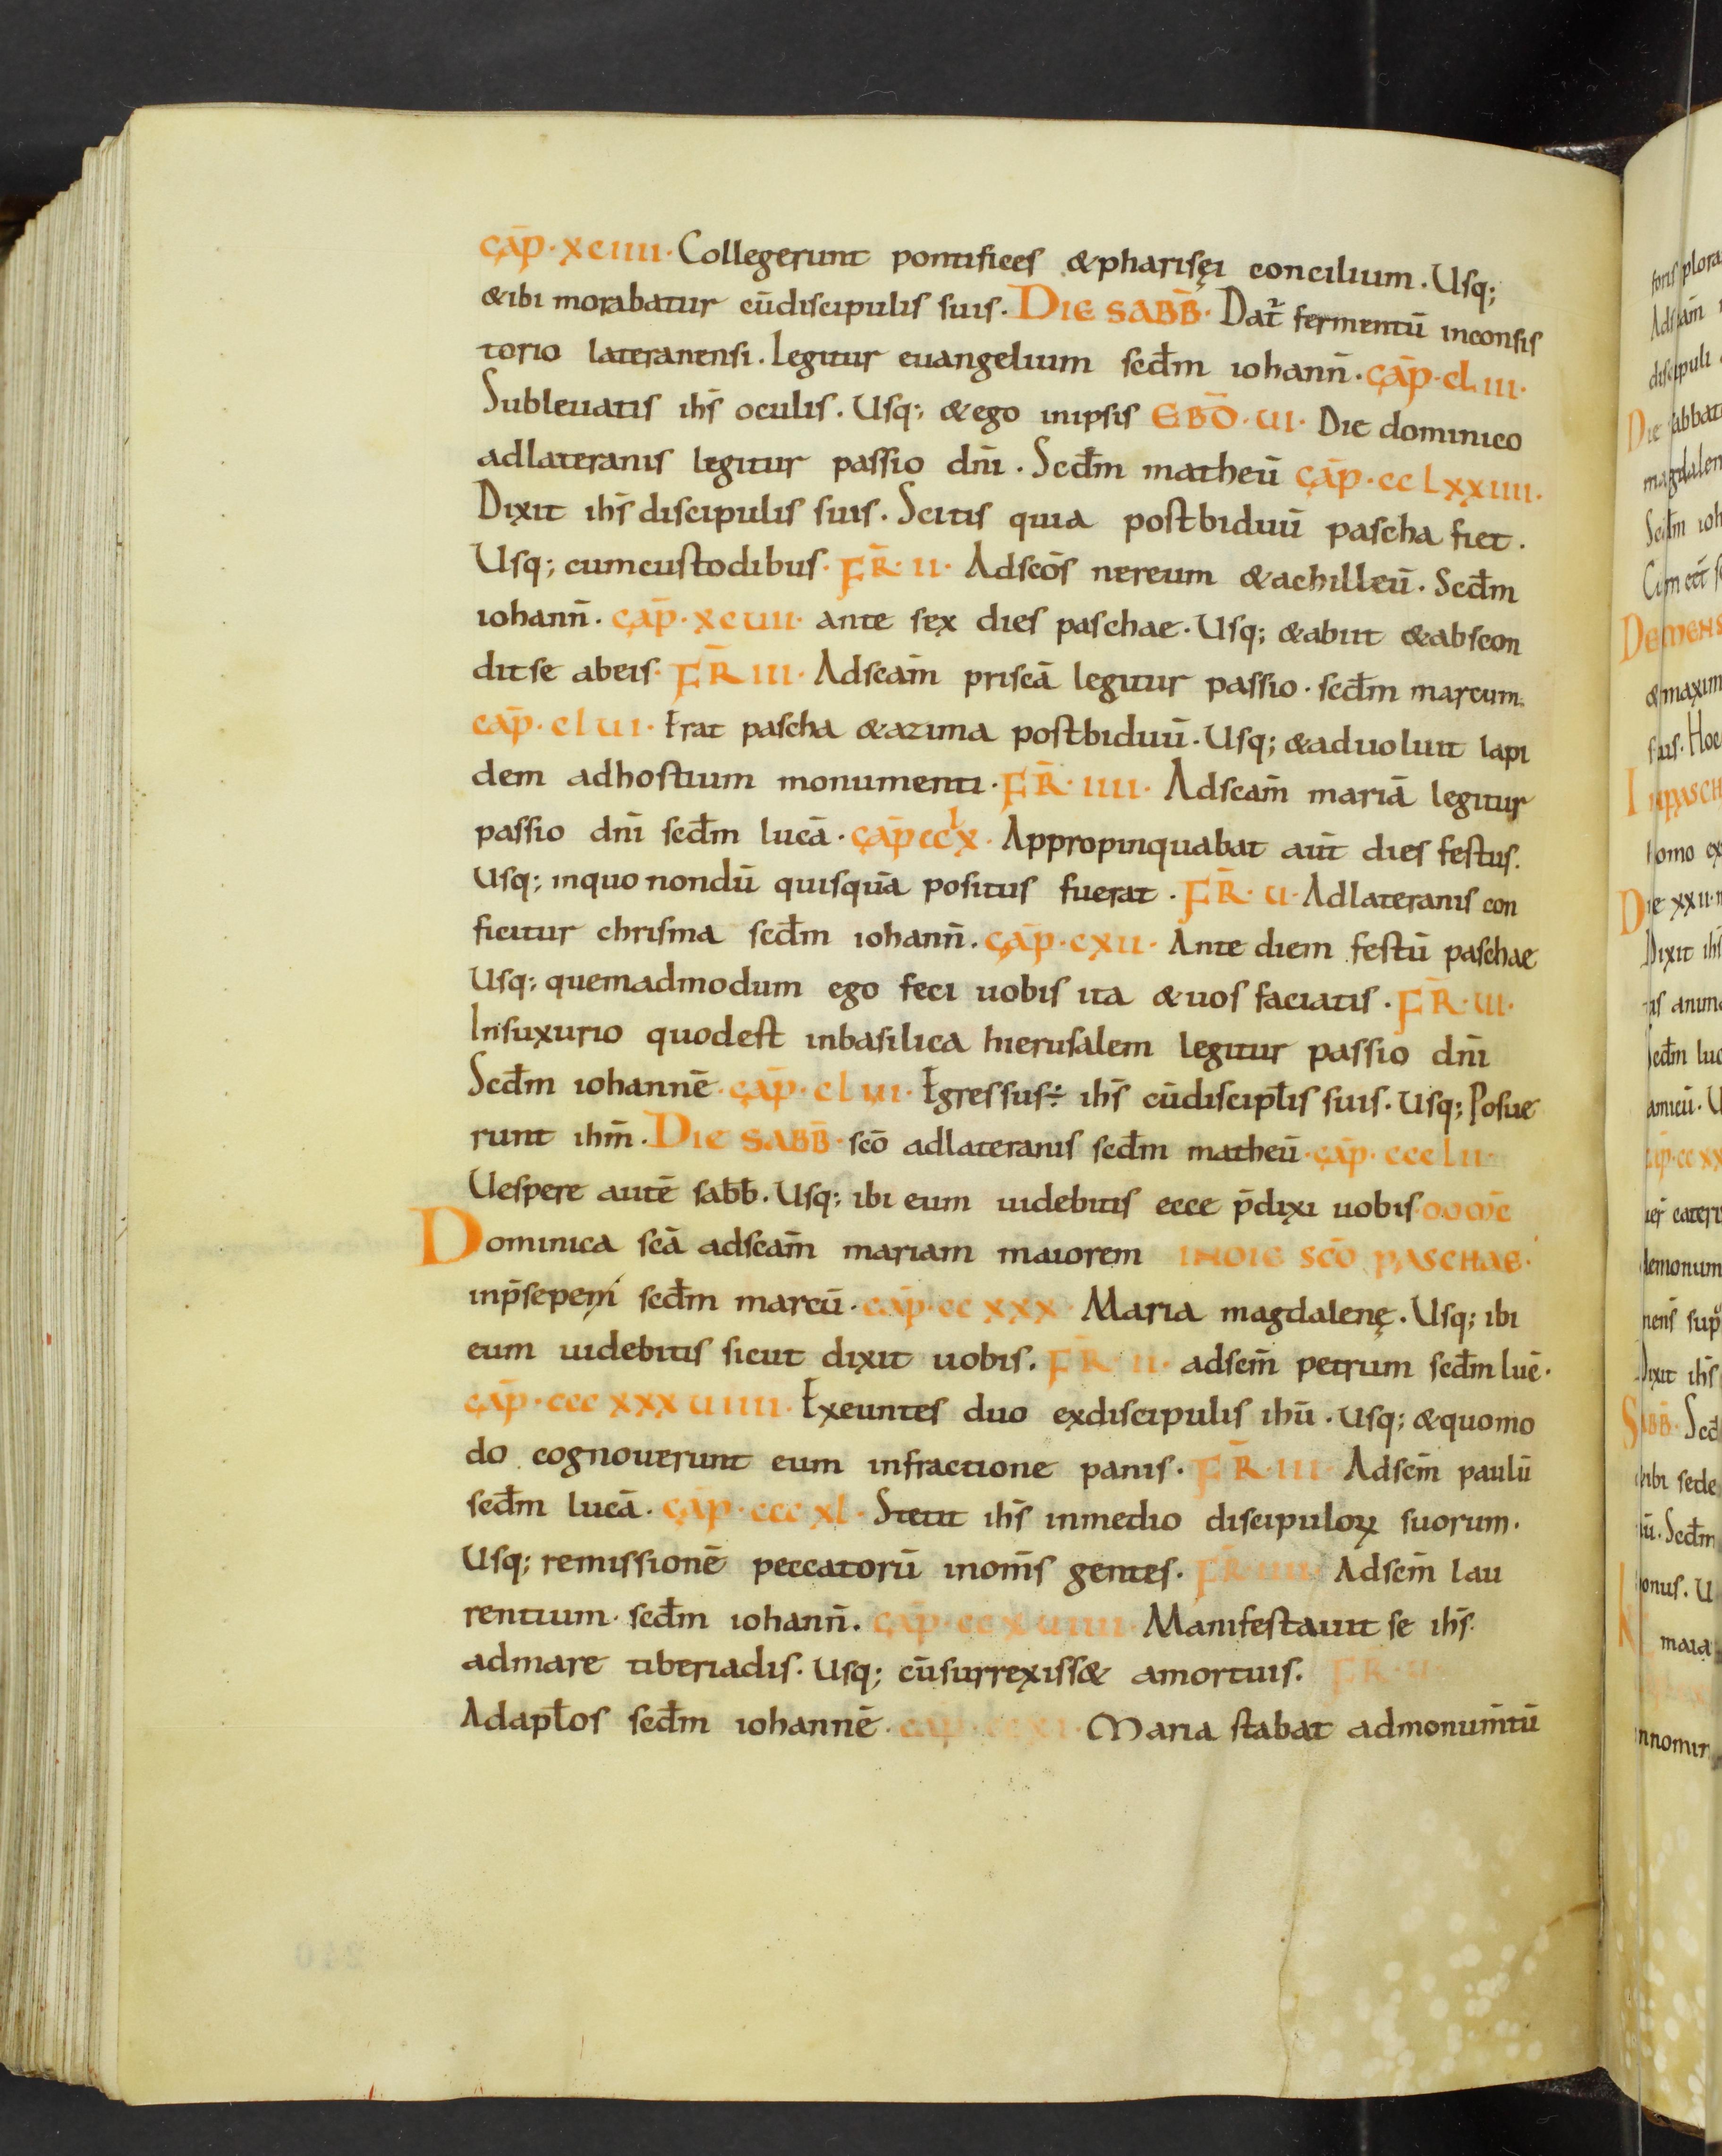 cap̄·xciiii· Collegerunt pontifices &pharisęi concilium. Usq;
&ibi morabatur cūdiscipulis suis. Die sabb̄· Dat̄ fermentū inconsis
torio lateranensi. Legitur euangelium secd̄m iohann̄. cap̄·cliii·
Subleuatis ihs̄ oculis. Usq; &ego inipsis Ebd̄·ui· Die dominico
adlateranis legitur passio dn̄i. Secd̄m matheū cap̄·cclxxiiii·
Dixit ihs̄ discipulis suis. Scitis quia postbiduū pascha fiet.
Usq; cumcustodibus. Fr̄·ii· Adscōs nereum &achilleū. Secd̄m
iohann̄. cap̄·xcuii· ante sex dies paschae. Usq; &abiit &abscon
ditse abeis. Fr̄ iii· Adscam̄ priscā legitur passio. secd̄m marcum.
cap̄·clui· Erat pascha &azima postbiduū. Usq; &aduoluit lapi
dem adhostium monumenti. Fr̄·iiii· Adscam̄ mariā legitur
passio dn̄i secd̄m lucā. cap̄cclx· Appropinquabat aut̄ dies festus.
Usq; inquo nondū quisquā positus fuerat. Fr̄·u· Adlateranis con
ficitur chrisma secd̄m iohann̄. cap̄·cxii· Ante diem festū paschae
Usq; quemadmodum ego feci uobis ita &uos faciatis. Fr̄·ui·
Insuxurio quodest inbasilica hierusalem legitur passio dn̄i
Secd̄m iohannē. cap̄·clui· Egressus÷ ihs̄ cūdiscipl̄is suis. Usq; Posue
runt ihm̄. Die sabb̄· scō adlateranis secd̄m matheū. cap̄·ccclii·
Uespere autē sabb̄. Usq; ibi eum uidebitis ecce p̄dixi uobis· domc̄
Dominica scā adscam̄ mariam maiorem indie scō paschae·
inp̄sepem secd̄m marcū. cap̄·ccxxx· Maria magdalenę. Usq; ibi
eum uidebitis sicut dixit uobis. Fr̄·ii· adscm̄ petrum secd̄m luc̄.
cap̄·cccxxxuiiii· Exeuntes duo exdiscipulis ihū. Usq; &quomo
do cognouerunt eum infractione panis. Fr̄·iii· Adscm̄ paulū
secd̄m lucā. cap̄·cccxl· Stetit ihs̄ inmedio discipuloꝝ suorum.
Usq; remissionē peccatorū inom̄s gentes. Fr̄·iiii· Adscm̄ lau
rentium. secd̄m iohann̄. cap̄·ccxuiiii· Manifestauit se ihs̄.
admare tiberiadis. Usq; cūsurrexiss& amortuis. Fr̄·u·
Adapl̄os secd̄m iohannē. cap̄·ccxi· Maria stabat admonum̄tū